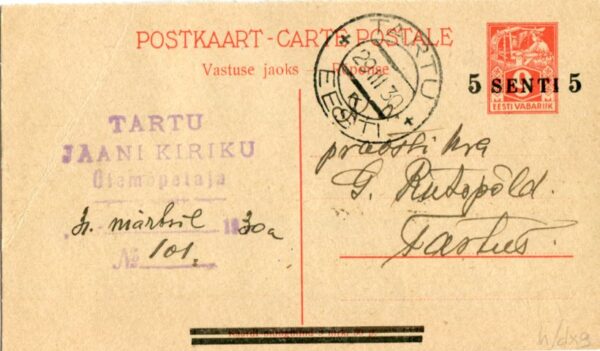 POSTKAART - CARTE POSTALE
Vastuse jaoks — Réponse
TARTU
29 III 30
EESTI
5 SENTI 5
EESTI VABARIIK
TARTU
JAANI KIRIKU
Ülemõpetaja
märtsil 1930a
№ 101.
praosti hra
G. Rutopõld.
Tartus.